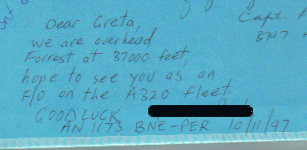 Dear Greta,
Capt.
we are overhead
B747
Forrest at 37000 feet,
hope to see you as an
F/O on the A320 fleet.
GOOD LUCK
AN 1173 BNE-PER 10/11/97